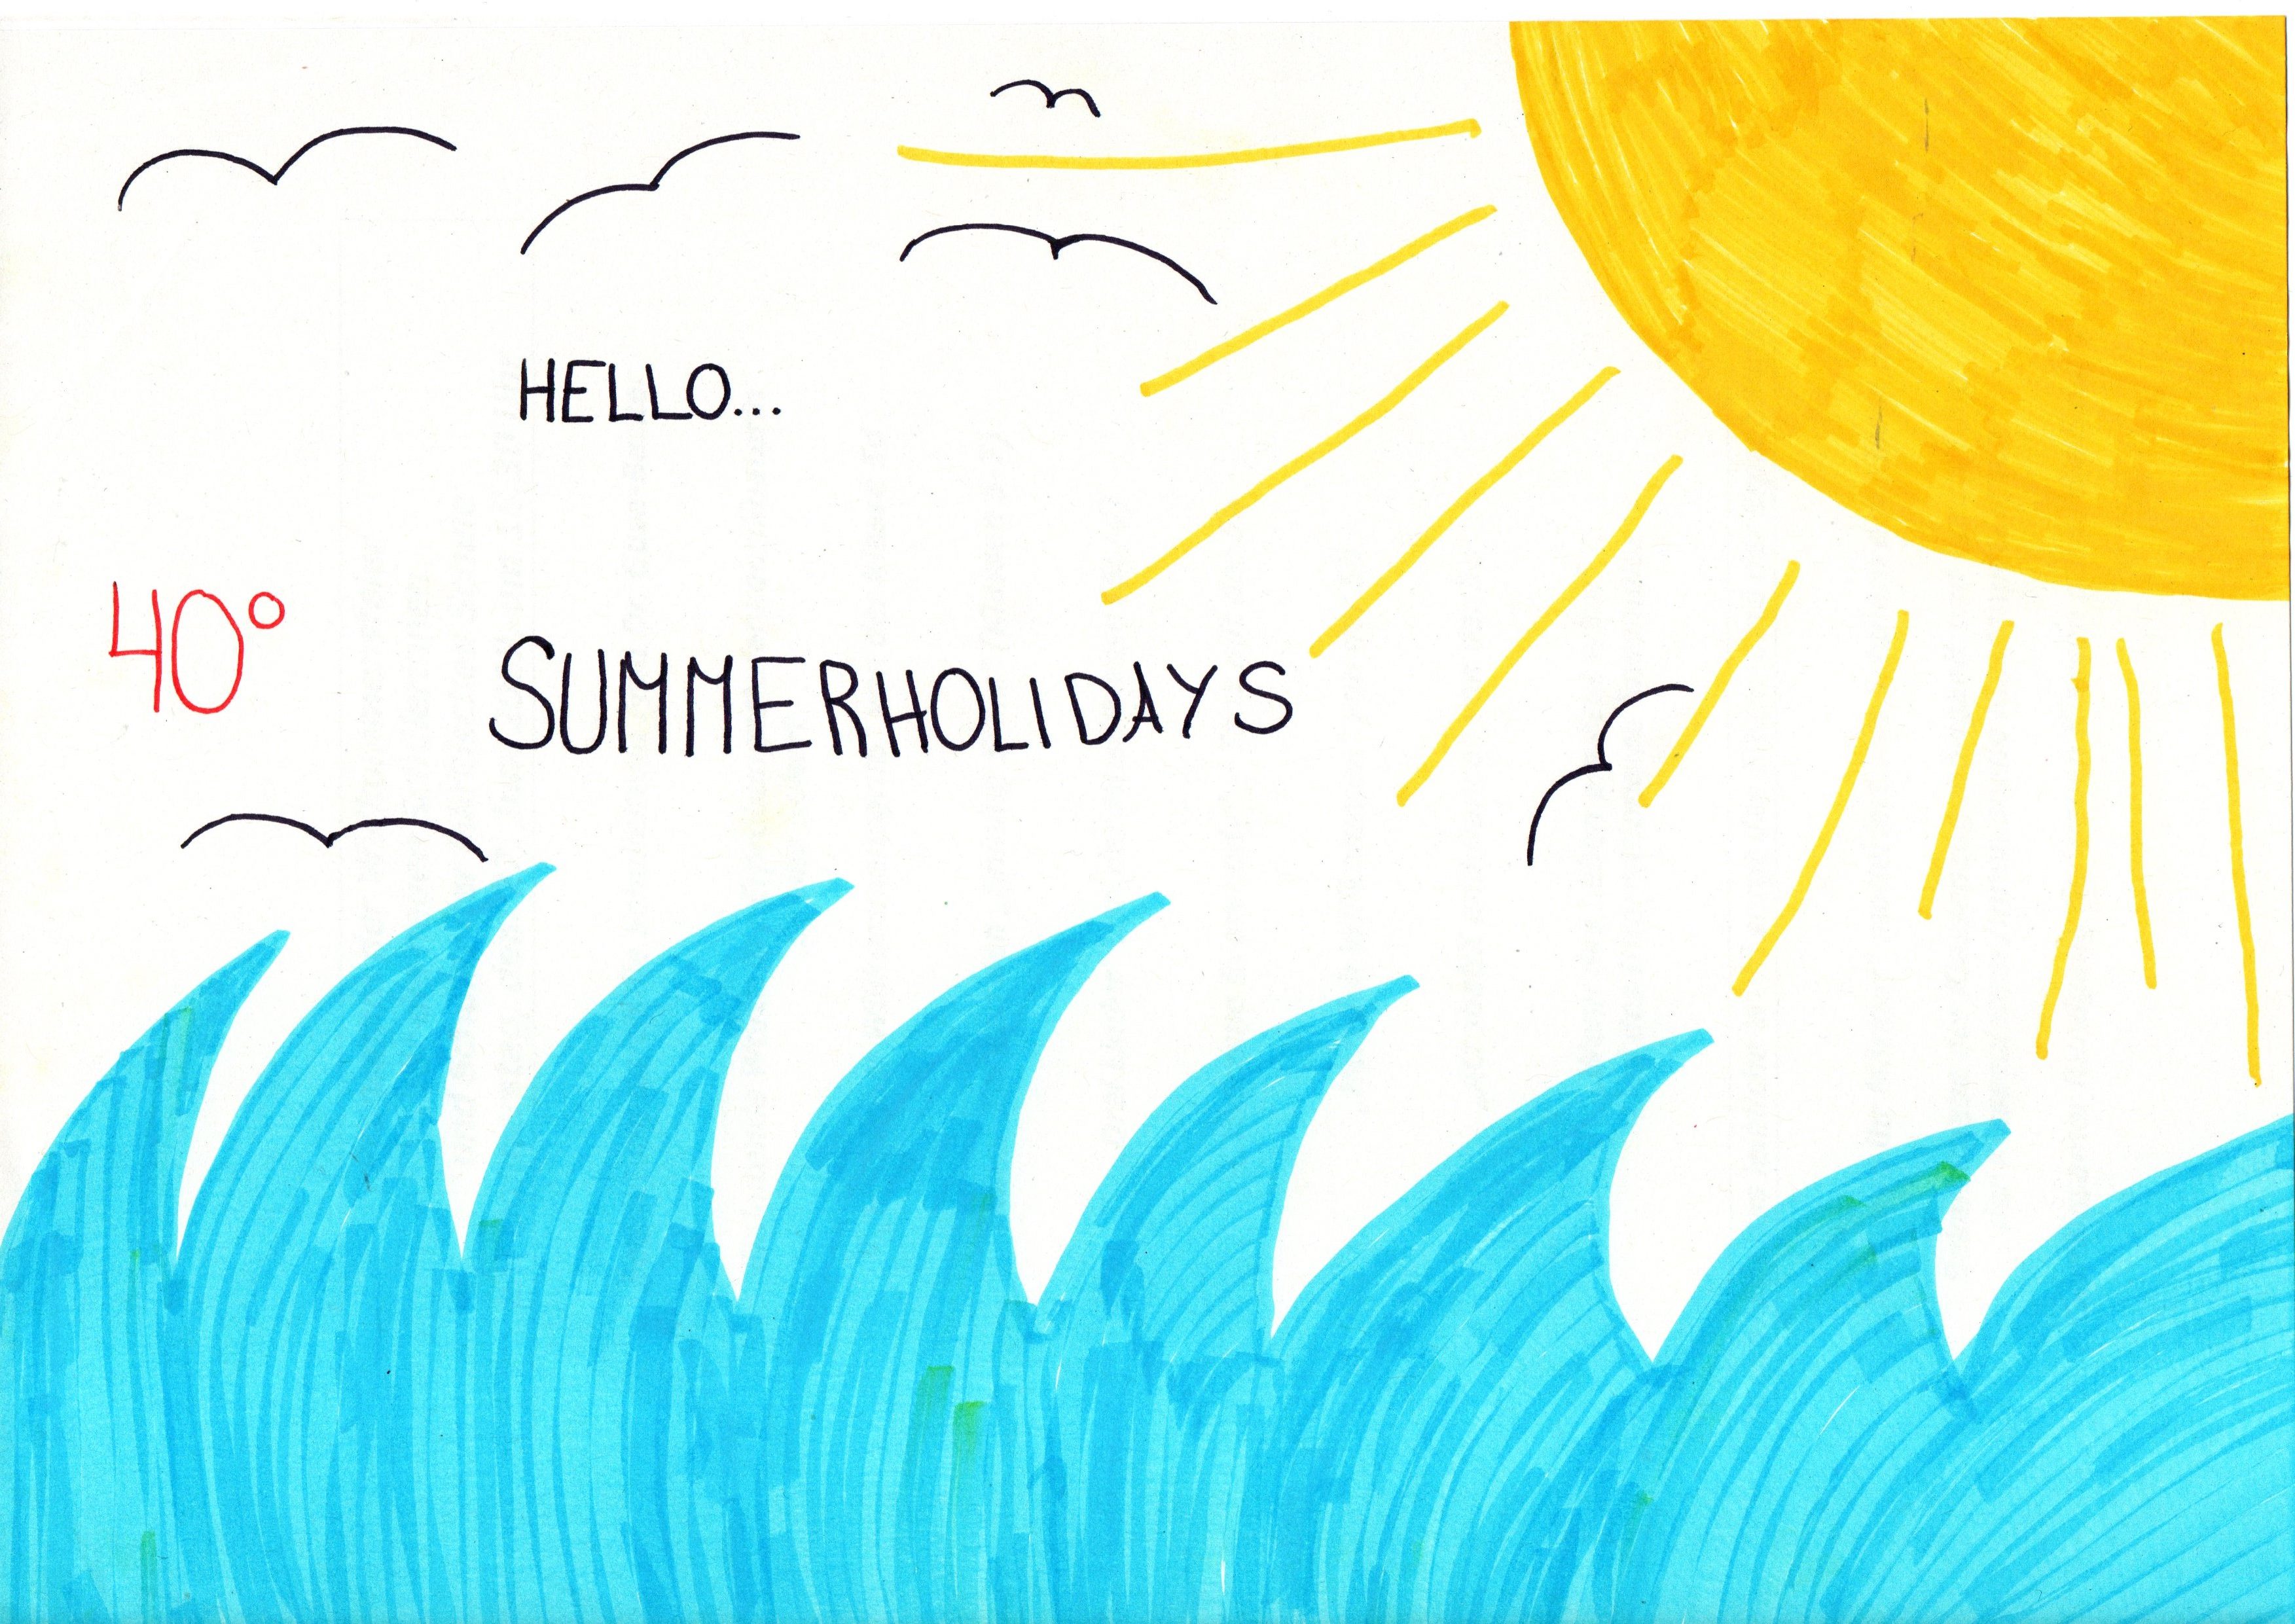 HELLO...
40°
SUMMERHOLIDAYS